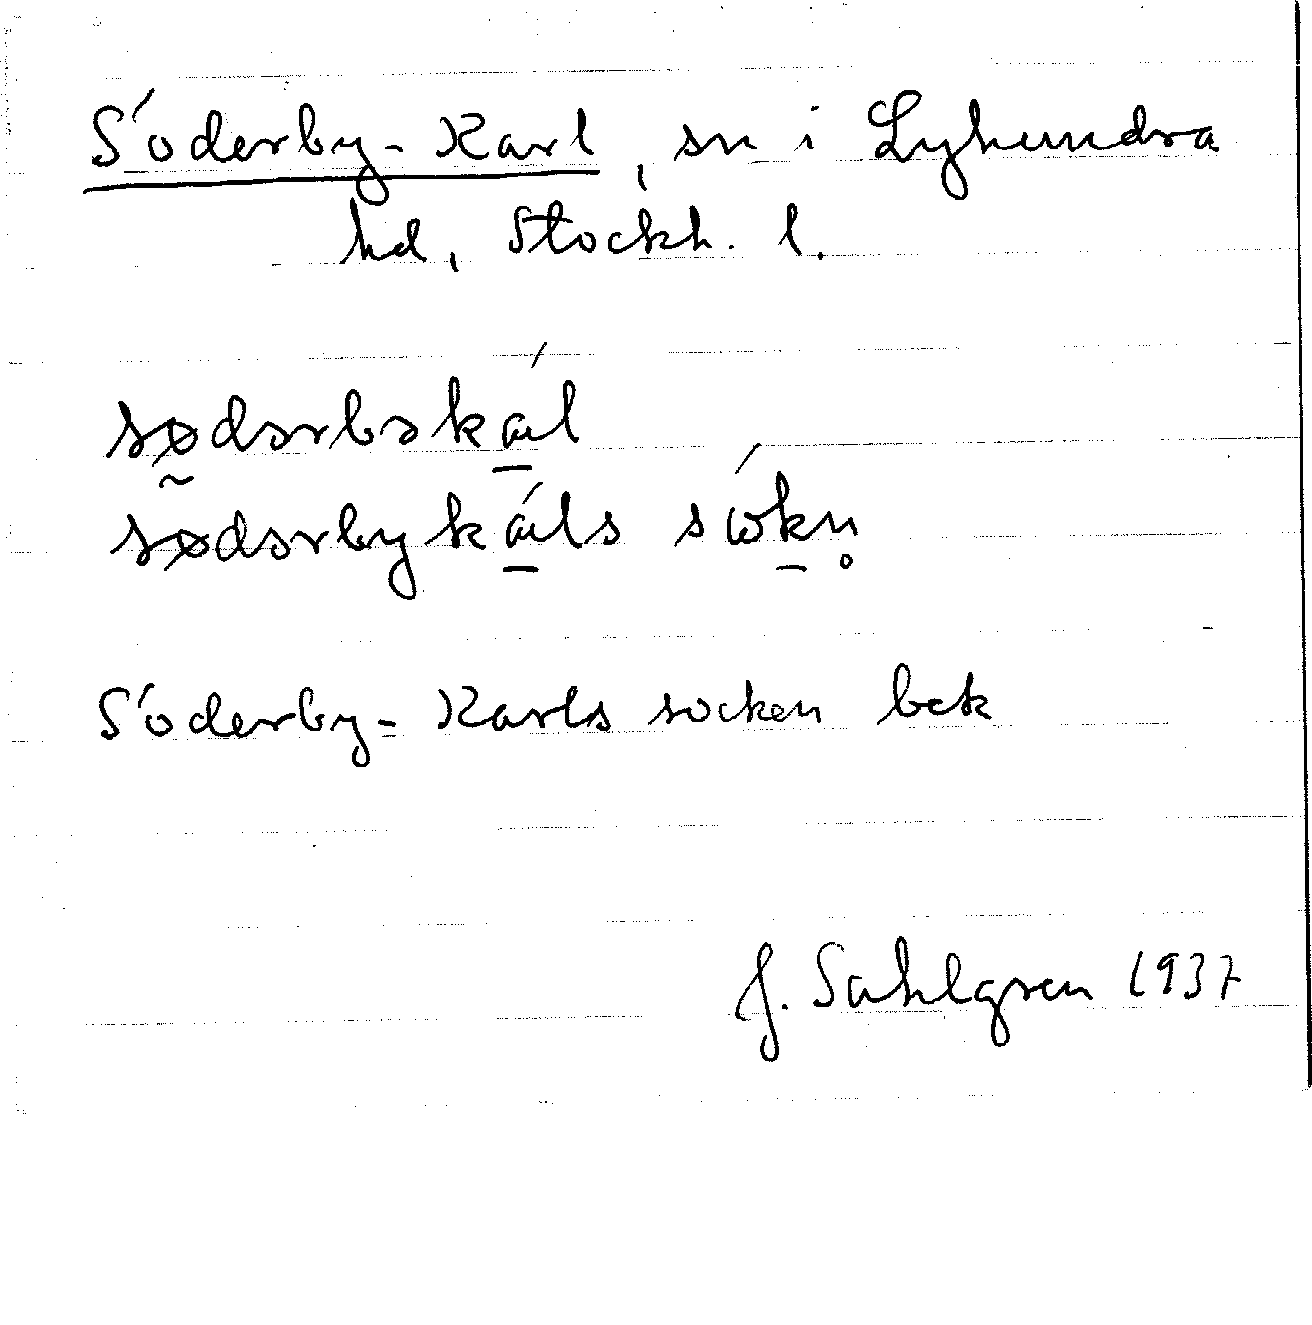 Söderby-Karl, sn i Lyhundra
hd, Stockh. l.
sødərbəkál
sødərbykáls sókn̥
Söderby-Karls socken bek
J. Sahlgren 1937